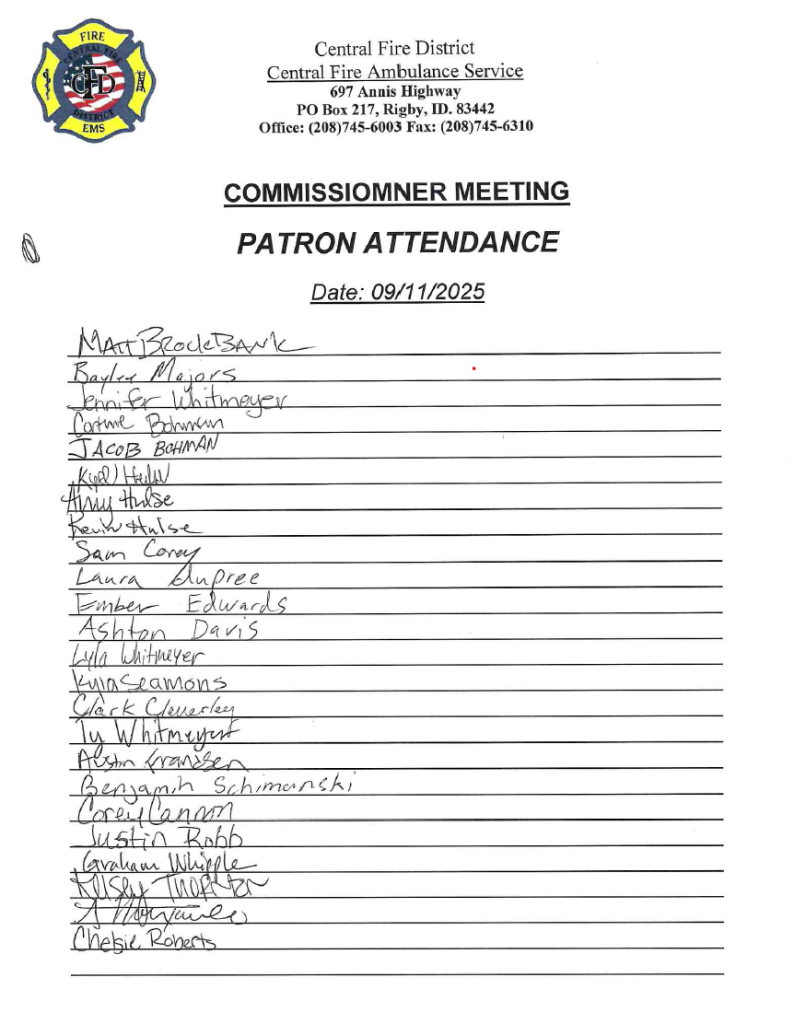 FIRE
CENTRAL FIRE
CFD
DISTRICT
EMS
Central Fire District
Central Fire Ambulance Service
697 Annis Highway
PO Box 217, Rigby, ID. 83442
Office: (208)745-6003 Fax: (208)745-6310
COMMISSIOMNER MEETING
PATRON ATTENDANCE
Date: 09/11/2025
MATT BROCKBANK
Baylee Majors
Jennifer Whitmeyer
Bohman
JACOB BOHMAN
Amy Hulse
Kevin Hulse
Sam Corey
Laura duPree
Ember Edwards
Ashton Davis
Lyla Whitmeyer
Kyla Seamons
Clark Cleverley
Ty Whitmeyer
Austin Frandsen
Benjamin Schimanski
Corey Cannon
Justin Robb
Graham Whipple
Kelsey Thornton
Chelsie Roberts